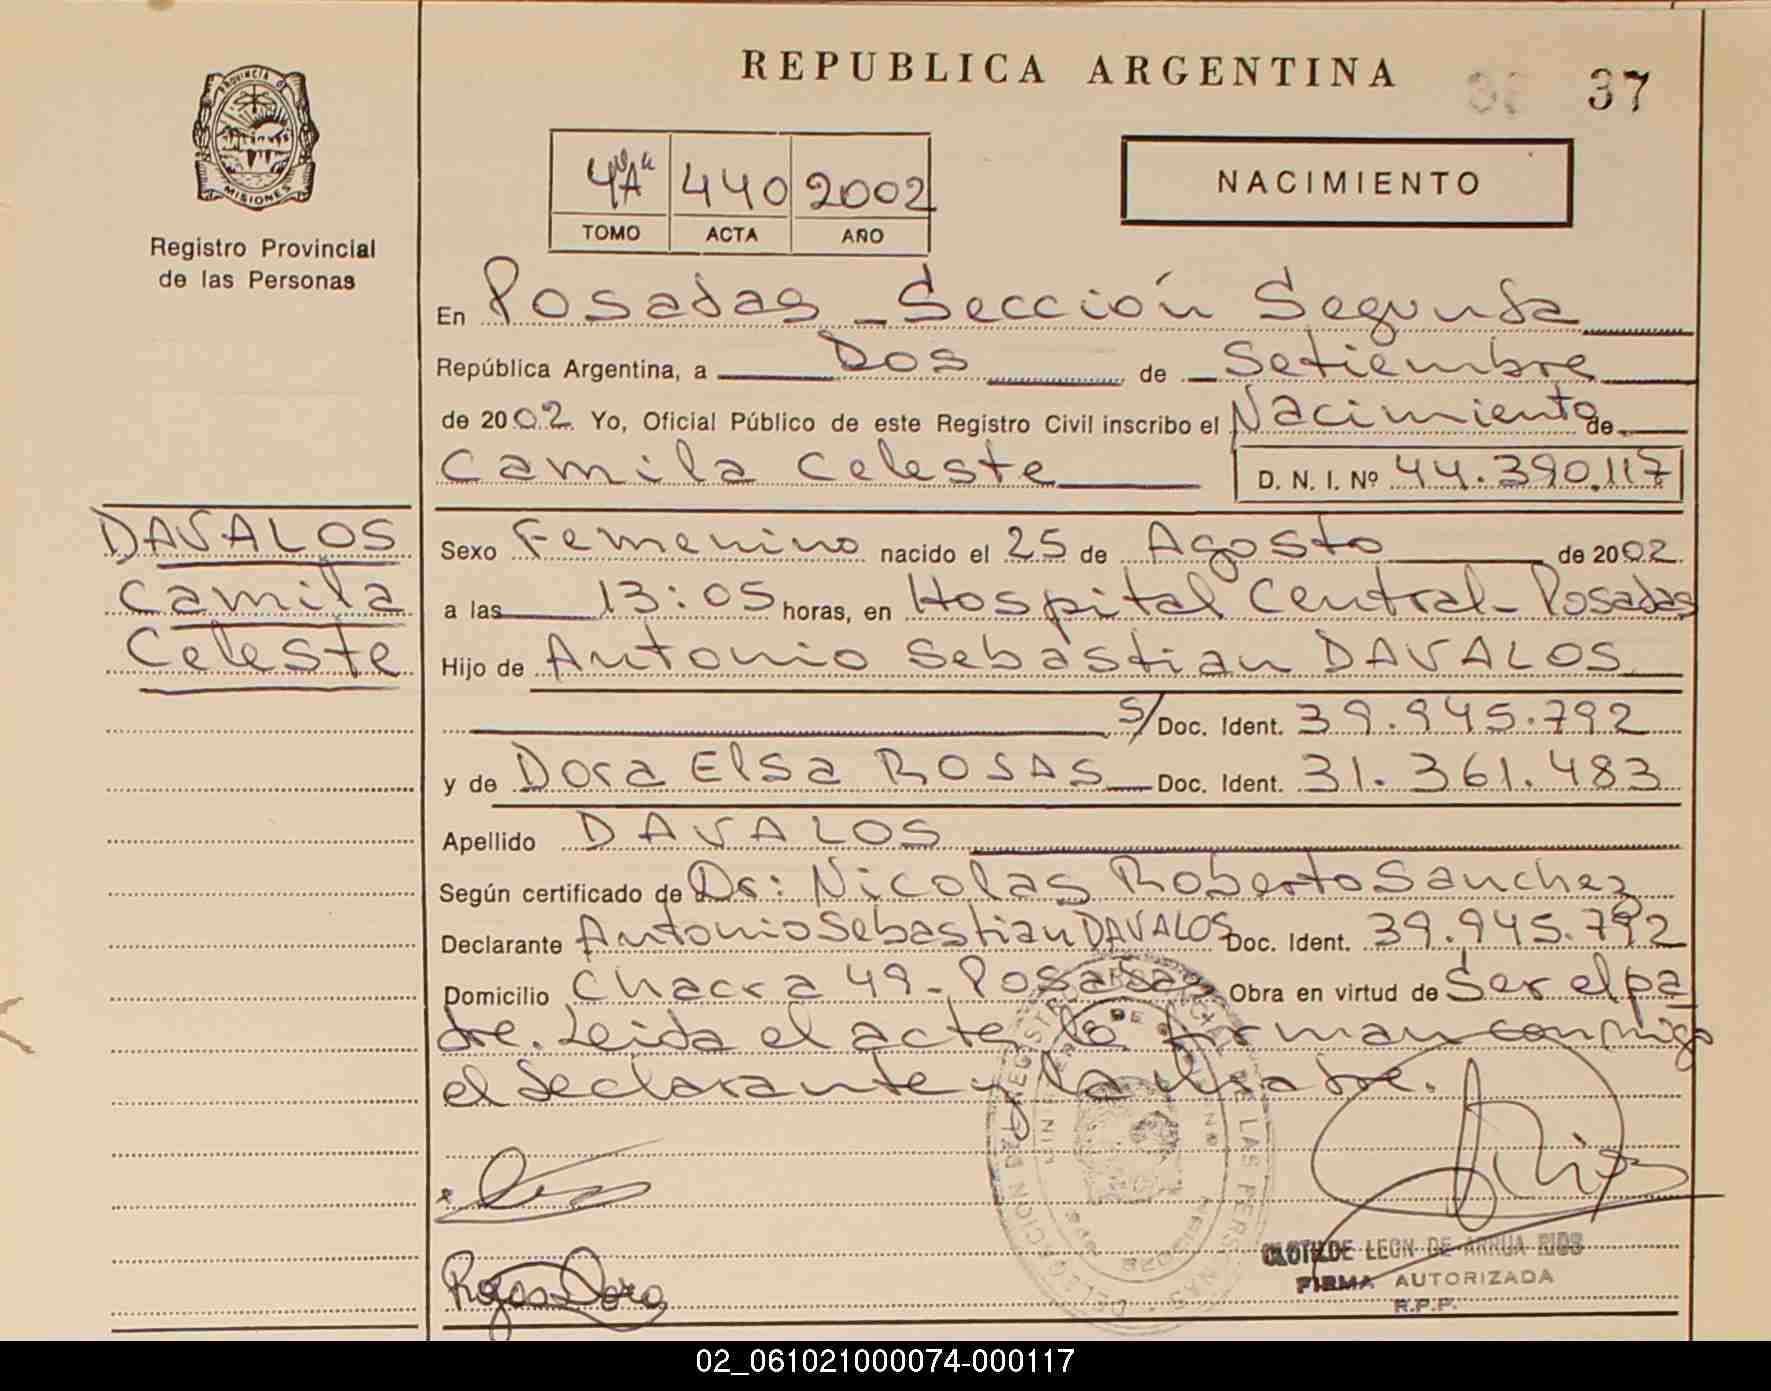 REPUBLICA ARGENTINA
37
PROVINCIA DE
MISIONES
Registro Provincial
de las Personas
4ª "A" 440 2002
TOMO ACTA AÑO
NACIMIENTO
En Posadas - Sección Segunda
República Argentina, a Dos de Setiembre
de 2002 Yo, Oficial Público de este Registro Civil inscribo el Nacimiento de
Camila Celeste D. N. I. Nº 44.390.117
DAVALOS
Camila
Celeste
Sexo Femenino nacido el 25 de Agosto de 2002
a las 13:05 horas, en Hospital Central - Posadas
Hijo de Antonio Sebastian DAVALOS
S/ Doc. Ident. 39.945.792
y de Dora Elsa ROSAS Doc. Ident. 31.361.483
Apellido DAVALOS
Según certificado de Dr: Nicolas Roberto Sanchez
Declarante Antonio Sebastian DAVALOS Doc. Ident. 39.945.792
Domicilio Chacra 49 - Posadas Obra en virtud de Ser el pa
dre. Leida el acta, la firman conmigo
el declarante y la madre.
Dora
CLOTILDE LEON DE ARRUA RIOS
FIRMA AUTORIZADA
R.P.P.
02_061021000074-000117